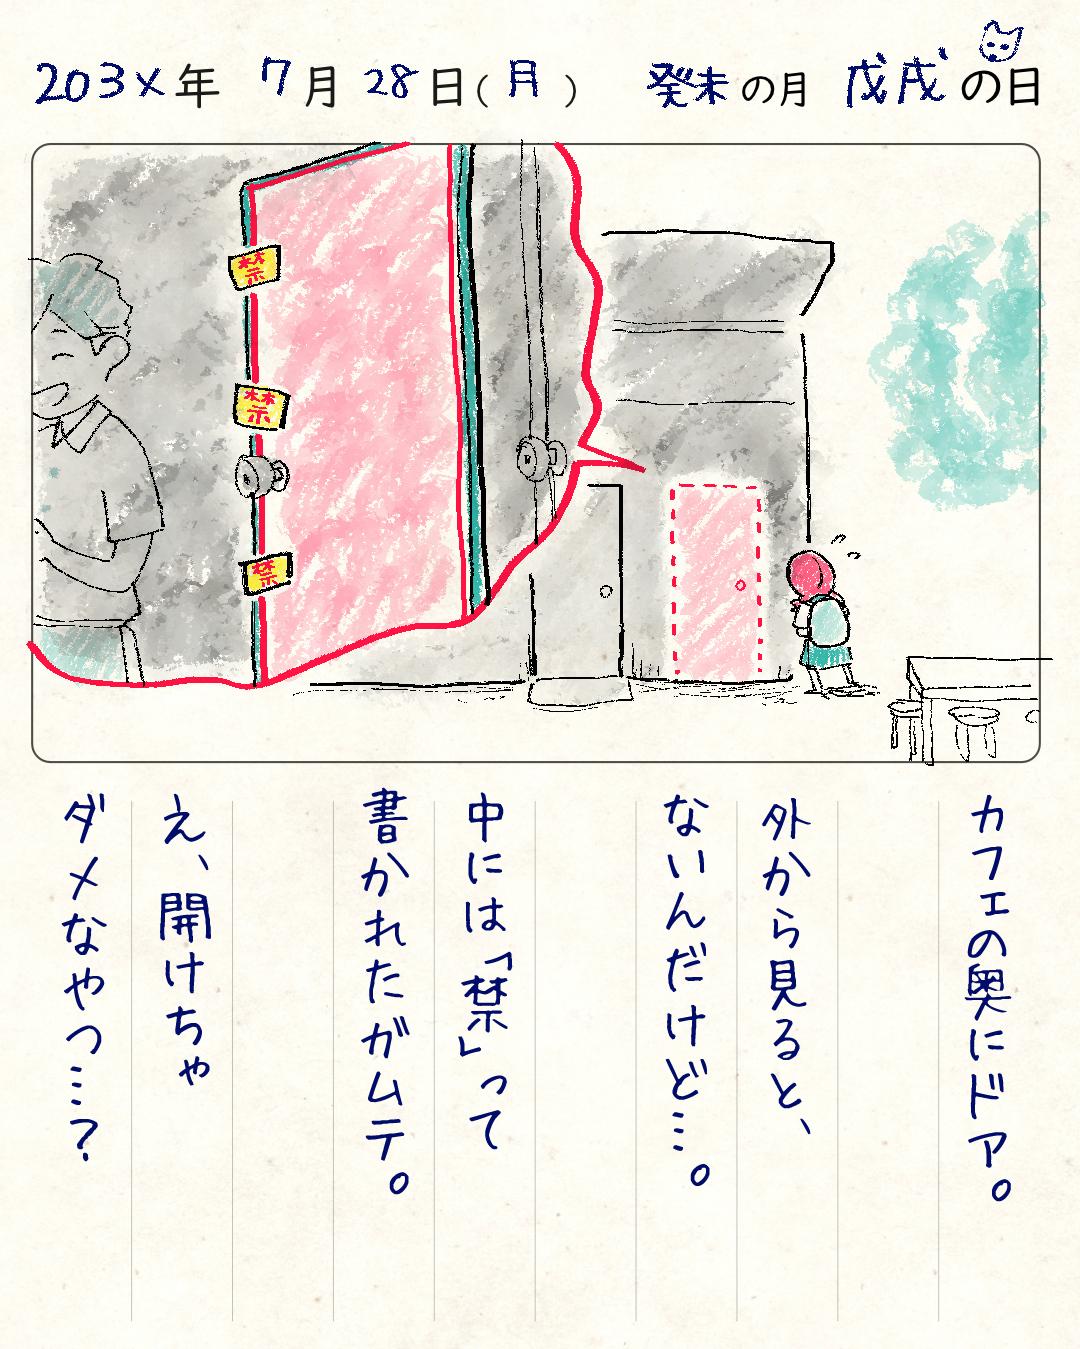 203X年 7月 28日(月) 癸未の月 戊戌の日
禁
禁
禁
カフェの奥にドア。
外から見ると、
ないんだけど…。
中には「禁」って
書かれたガムテ。
え、開けちゃ
ダメなやつ…?